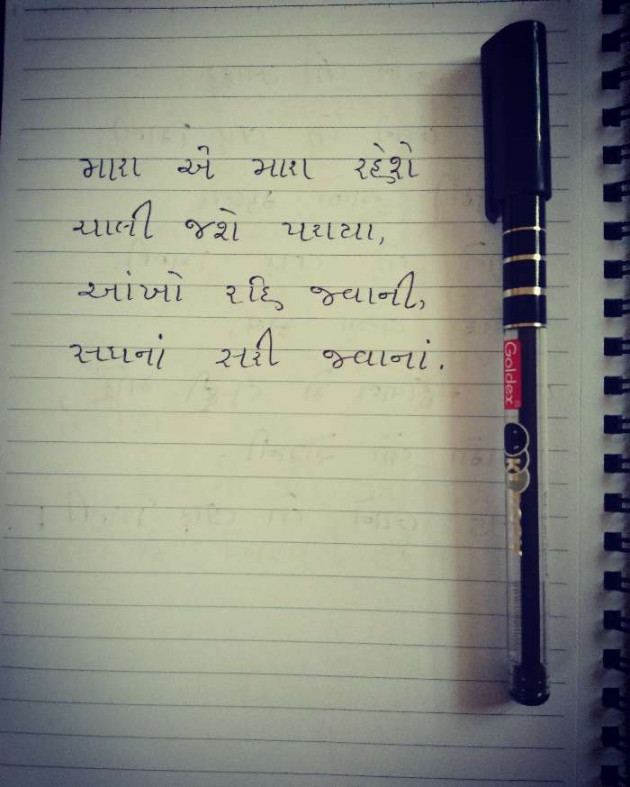 મારા એ મારા રહેશે
ચાલી જશે પરાયા,
આંખો રહિ જવાની,
સપનાં સરી જવાનાં.
Goldex